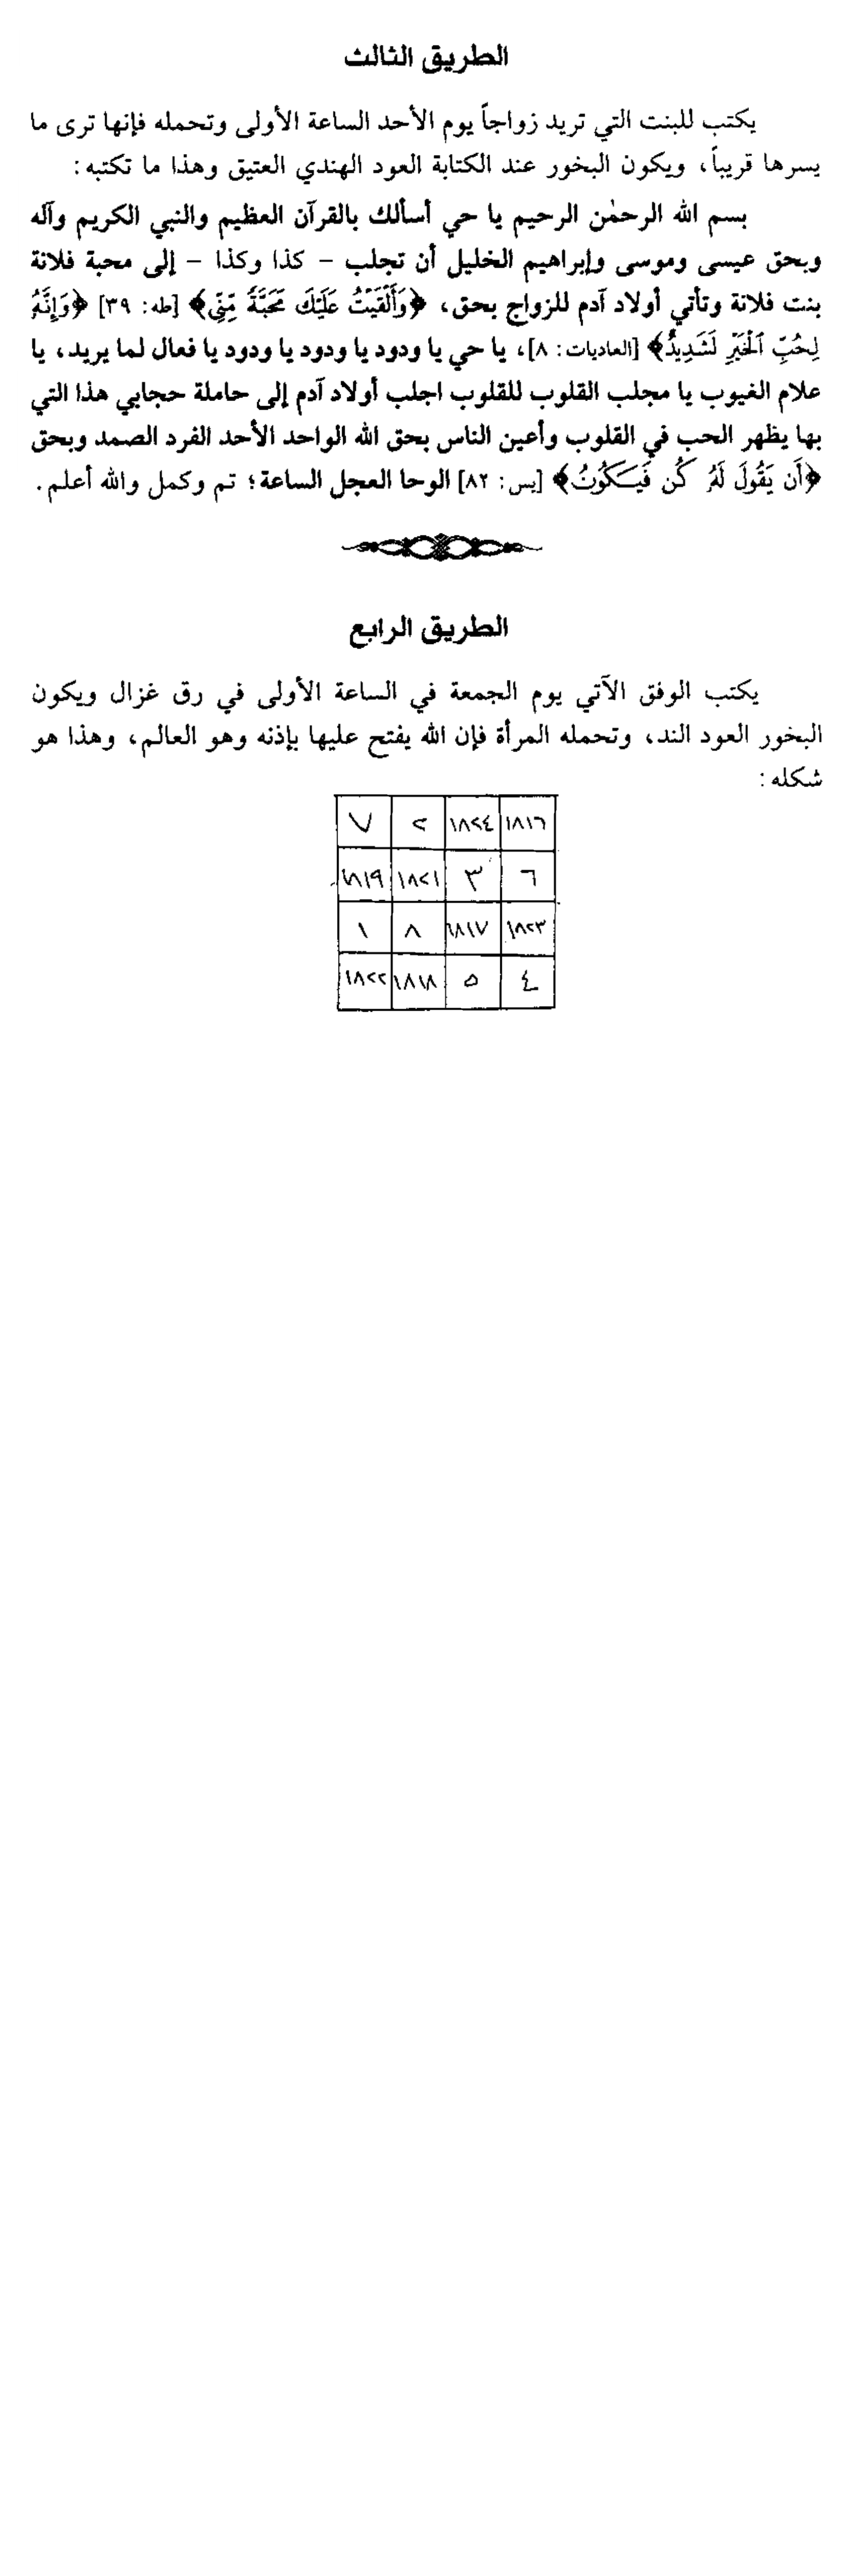 الطريق الثالث
يكتب للبنت التي تريد زواجاً يوم الأحد الساعة الأولى وتحمله فإنها ترى ما
يسرها قريباً، ويكون البخور عند الكتابة العود الهندي العتيق وهذا ما تكتبه:
بسم الله الرحمٰن الرحيم يا حي أسألك بالقرآن العظيم والنبي الكريم وآله
وبحق عيسى وموسى وإبراهيم الخليل أن تجلب - كذا وكذا - إلى محبة فلانة
بنت فلانة وتأتي أولاد آدم للزواج بحق، ﴿وَأَلْقَيْتُ عَلَيْكَ مَحَبَّةً مِّنِّي﴾ [طه: ٣٩] ﴿وَإِنَّهُ
لِحُبِّ ٱلْخَيْرِ لَشَدِيدٌ﴾ [العاديات: ٨]، يا حي يا ودود يا ودود يا ودود يا فعال لما يريد، يا
علام الغيوب يا مجلب القلوب للقلوب اجلب أولاد آدم إلى حاملة حجابي هذا التي
بها يظهر الحب في القلوب وأعين الناس بحق الله الواحد الأحد الفرد الصمد وبحق
﴿أَن يَقُولَ لَهُ كُن فَيَكُونُ﴾ [يس: ٨٢] الوحا العجل الساعة؛ تم وكمل والله أعلم.
الطريق الرابع
يكتب الوفق الآتي يوم الجمعة في الساعة الأولى في رق غزال ويكون
البخور العود الند، وتحمله المرأة فإن الله يفتح عليها بإذنه وهو العالم، وهذا هو
شكله:
١٨١٦ ١٨٢٤ ٢ ٧
٦ ٣ ١٨٢١ ١٨١٩
١٨٢٣ ١٨١٧ ٨ ١
٤ ٥ ١٨١٨ ١٨٢٢